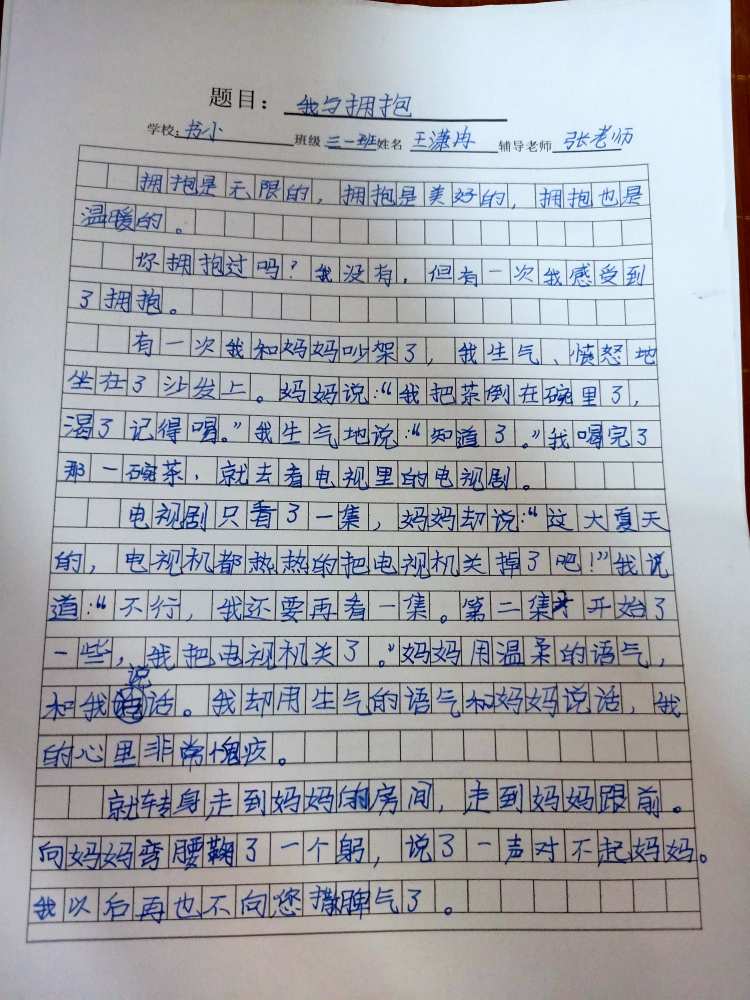 题目：我与拥抱
学校：书小 班级 三一班 姓名 王潇冉 辅导老师 张老师
拥抱是无限的，拥抱是美好的，拥抱也是
温暖的。
你拥抱过吗？我没有，但有一次我感受到
了拥抱。
有一次我和妈妈吵架了，我生气、愤怒地
坐在了沙发上。妈妈说：“我把茶倒在碗里了，
渴了记得喝。”我生气地说：“知道了。”我喝完了
那一碗茶，就去看电视里的电视剧。
电视剧只看了一集，妈妈却说：“这大夏天
的，电视机都热热的把电视机关掉了吧！”我说
道：“不行，我还要再看一集。第二集才开始了
一些，我把电视机关了。”妈妈用温柔的语气，
和我说话。我却用生气的语气和妈妈说话，我
的心里非常愧疚。
就转身走到妈妈的房间，走到妈妈跟前。
向妈妈弯腰鞠了一个躬，说了一声对不起妈妈。
我以后再也不向您撒脾气了。